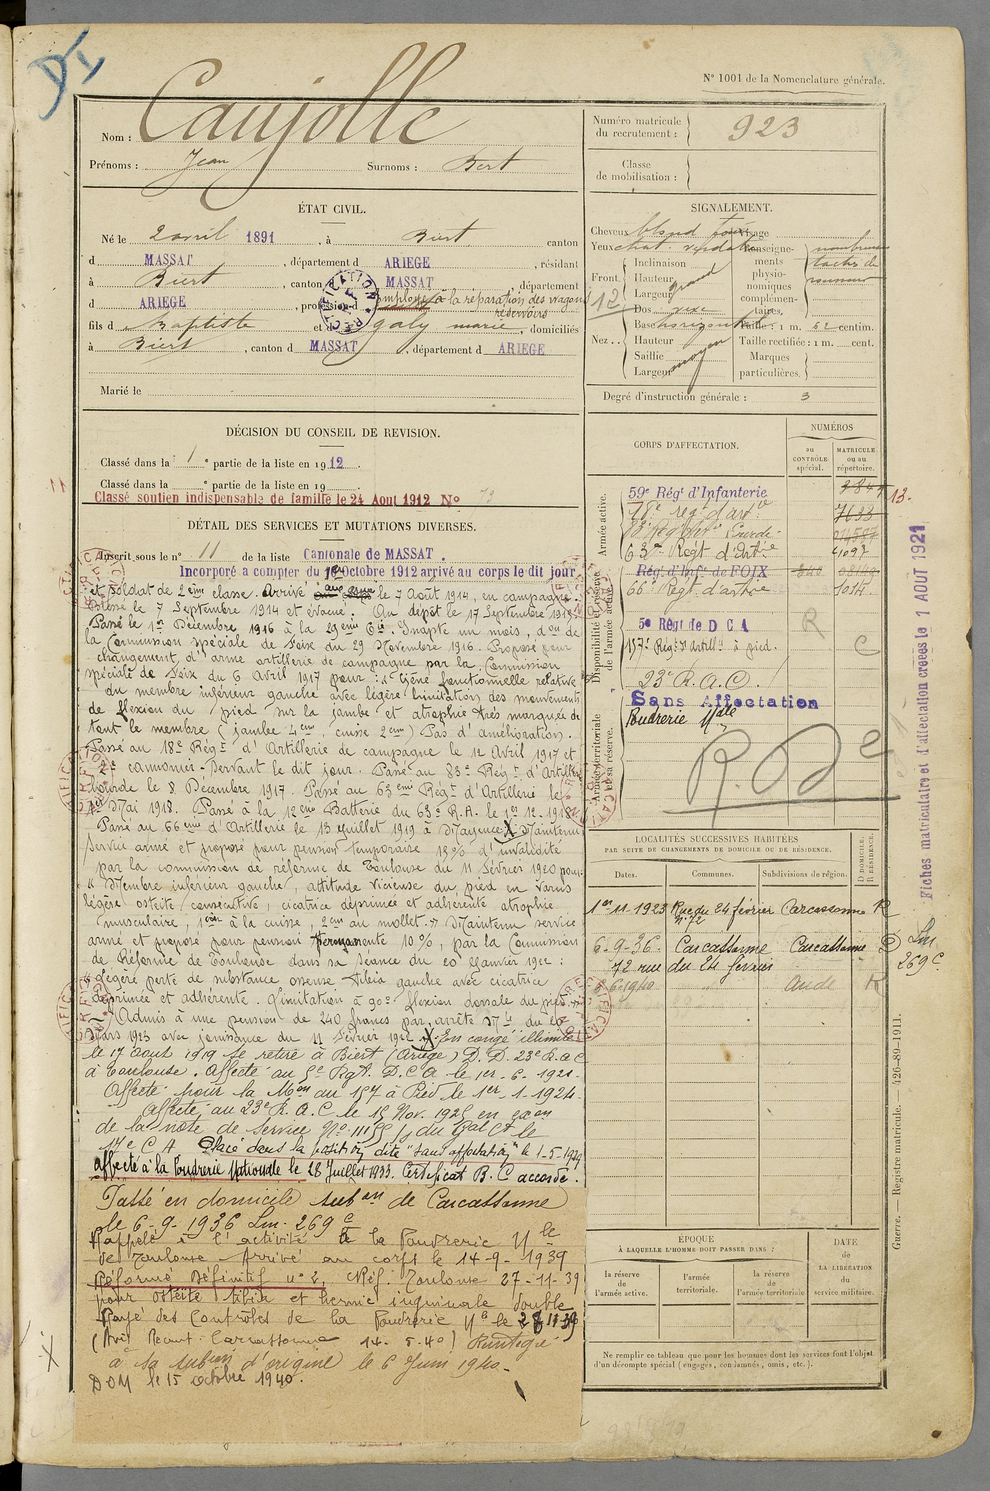 N° 1001 de la Nomenclature générale.
Nom : Caujolle
Prénoms : Jean Surnoms : Bert
ÉTAT CIVIL.
Né le 2 avril 1891, à Biert canton
d MASSAT, département d ARIEGE, résidant
à Biert, canton d MASSAT, département
d ARIEGE, profession d employé à la réparation des wagons
réservoirs
RECTIFICATION
fils d Baptiste et d galy marie, domiciliés
à Biert, canton d MASSAT, département d ARIEGE
Marié le
DÉCISION DU CONSEIL DE REVISION.
Classé dans la 1e partie de la liste en 1912.
Classé dans la e partie de la liste en 19
Classé soutien indispensable de famille le 24 Aout 1912 N° 79
DÉTAIL DES SERVICES ET MUTATIONS DIVERSES.
Inscrit sous le n° 11 de la liste Cantonale de MASSAT.
Incorporé a compter du 1er Octobre 1912 arrivé au corps le dit jour
et soldat de 2ème classe. Arrivé aux armées le 7 Août 1914, en campagne.
Blessé le 7 Septembre 1914 et évacué. Au dépôt le 17 Septembre 1915.
Passé le 1er Décembre 1916 à la 29ème Cie. Inapte un mois, don de
la Commission spéciale de Foix du 29 Novembre 1916. Proposé pour
changement d'arme artillerie de campagne par la Commission
spéciale de Foix du 6 Avril 1917 pour : "Gêne fonctionnelle relative
du membre inférieur gauche avec légère limitation des mouvements
de flexion du pied sur la jambe et atrophie très marquée de
tout le membre (jambe 4cm, cuisse 2cm) Pas d'amélioration.
Passé au 18e Régt d'Artillerie de campagne le 12 Avril 1917 et
2e canonnier-servant le dit jour. Passé au 83e Régt d'Artillerie
lourde le 8 Décembre 1917. Passé au 63ème Régt d'Artillerie le
1er Mai 1918. Passé à la 12ème Batterie du 63e R.A. le 1er 12.1918
Passé au 66ème d'Artillerie le 13 Juillet 1919 à Mayence. X Maintenu
service armé et proposé pour pension temporaire 15% d'invalidité
par la commission de réforme de Toulouse du 11 Février 1920 pour
"Membre inférieur gauche, attitude vicieuse du pied en varus
légère ostéite consécutive, cicatrice déprimée et adhérente atrophie
musculaire, 1cm à la cuisse, 2cm au mollet." Maintenu service
armé et proposé pour pension Permanente 10%, par la Commission
de Réforme de Toulouse dans sa séance du 20 Janvier 1922 :
"Légère perte de substance osseuse tibia gauche avec cicatrice
déprimée et adhérente. Limitation à 90° flexion dorsale du pied."
Admis à une pension de 240 francs par arrêté Mel du 20
Mars 1923 avec jouissance du 11 Février 1922. X En congé illimité
le 17 août 1919 se retire à Biert (Ariège) D.D. 23e R.a.c
à Toulouse. Affecté au 5e Rgt. D.C.A le 1er-6-1921.
Affecté pour la Mon au 157 à Pied le 1er-1-1924.
Affecté au 23e R.A.C. le 15 Nov. 1925 en exon
de la note de service N° du Gal Ct le
17e C A Placé dans la position dite "sans affectation" le 1-5-1929
affecté à la Poudrerie Nationale le 28 Juillet 1933. Certificat B.C accordé.
Passé en domicile subon de Carcassonne
le 6-9-1936 Lm. 269 C
Rappelé à l'activité à la Poudrerie Nle
de Toulouse Arrivé au corps le 14-9-1939
Réformé Définitif n°2, Réf. Toulouse 27-11-39
pour ostéite tibia et hernie inguinale double
Rayé des Contrôles de la Poudrerie Nle le 28 11 39
(Avis Recrut. Carcassonne 14-5-40) Réintégré
à sa subon d'origine le 6 Juin 1940.
DOM le 15 octobre 1940.
Numéro matricule du recrutement : 923
Classe de mobilisation :
SIGNALEMENT.
Cheveux blond foncé Visage
Yeux chat. verdatre Renseignements physionomiques complémentaires. nombreuses
taches de
rousseur
Front. Inclinaison
Hauteur grand
Largeur
12
Nez.. Dos vexe
Base horizontale Taille : 1 m. 62 centim.
Hauteur Taille rectifiée : 1 m. cent.
Saillie moyen Marques
Largeur particulières.
Degré d'instruction générale : 3
CORPS D'AFFECTATION.
NUMÉROS
au CONTRÔLE spécial.
MATRICULE ou au répertoire.
Armée active.
59e Régt d'Infanterie
18e régt d'artie 7633
63me Regt d'Artie 41097
Disponibilité et réserve de l'armée active.
Régt d'Inft de FOIX
66e Régt d'artie 7014
5e Régt de D C A R
157e Régt d'Artille à pied. C
23e R.A.C.
Armée territoriale et sa réserve.
Sans Affectation
Poudrerie Nale
R D 2e
LOCALITÉS SUCCESSIVES HABITÉES
PAR SUITE DE CHANGEMENTS DE DOMICILE OU DE RÉSIDENCE.
Dates. Communes. Subdivisions de région. D DOMICILE. R RÉSIDENCE.
1er-11-1923 Rue du 24 février Carcassonne R
n° 72
6-9-36. Carcassonne Carcassonne D Lm
269 C.
72 rue du 24 fevrier
6-6-1940 " Aude R
ÉPOQUE
À LAQUELLE L'HOMME DOIT PASSER DANS :
la réserve de l'armée active.
l'armée territoriale.
la réserve de l'armée territoriale
DATE de LA LIBÉRATION du service militaire.
Ne remplir ce tableau que pour les hommes dont les services font l'objet
d'un décompte spécial (engagés, condamnés, omis, etc.).
Fiches matriculaire et d'affectation créées le 1 AOUT 1921
Guerre. — Registre matricule. — 426-89-1911.